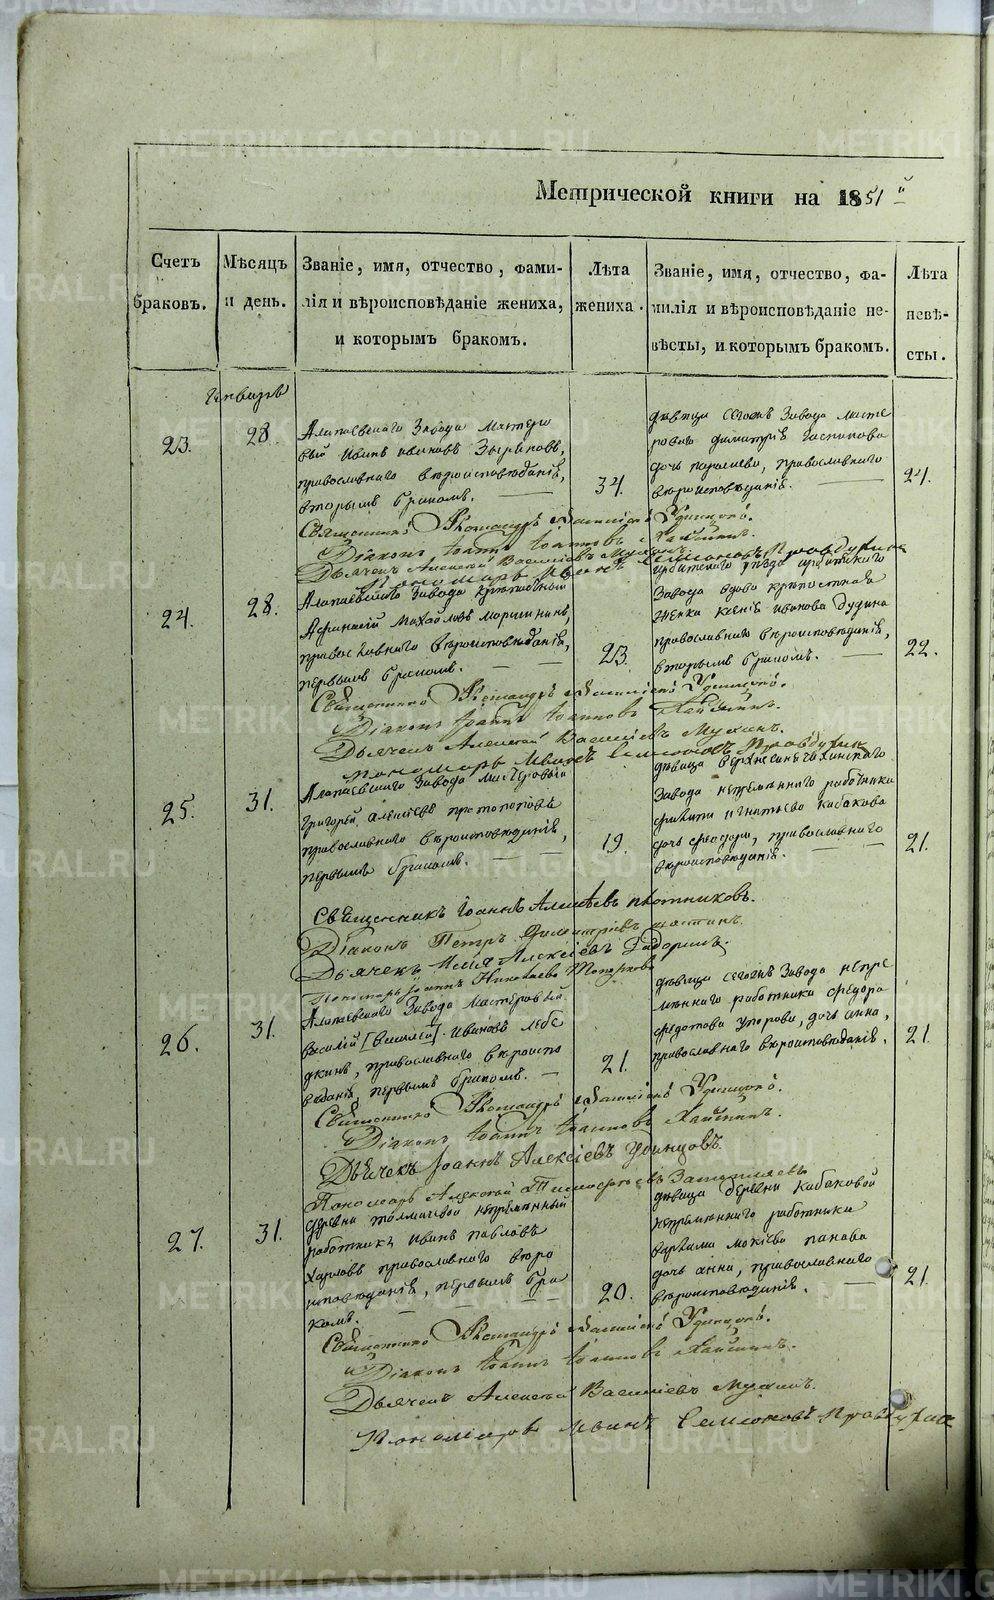 Метрической книги на 1851й
Счетъ браковъ.
Мѣсяцъ и день.
Званіе, имя, отчество, фами-
лія и вѣроисповѣданіе жениха,
и которымъ бракомъ.
Лѣта жениха.
Званіе, имя, отчество, фа-
милія и вѣроисповѣданіе не-
вѣсты, и которымъ бракомъ.
Лѣта невѣ-
сты.
Генварь
23.
28.
Алапаевскаго Завода мастеро
вый Иванъ Ивановъ Зыряновъ,
православнаго вѣроисповѣданія,
вторымъ бракомъ.
34.
дѣвица сегожъ Завода масте
роваго Димитрія
дочь православнаго
вѣроисповѣданія.
24.
Священникъ Александръ Удинцовъ.
Діаконъ Іоаннъ Іоанновъ
Дьячекъ Алексей Васильевъ Мухинъ.
Пономарь Иванъ Семеновъ Правдухинъ
24.
28.
Алапаевскаго Завода
Афанасій Михайловъ
православнаго вѣроисповѣданія,
первымъ бракомъ.
23.
Ирбитскаго уѣзда Ирбитскаго
Завода вдова крѣпостная
женка Ксенія Иванова Дудина
православнаго вѣроисповѣданія,
вторымъ бракомъ.
22.
Священникъ Александръ Удинцовъ.
Діаконъ Іоаннъ Іоанновъ
Дьячекъ Алексей Васильевъ Мухинъ.
пономарь Иванъ Семеновъ Правдухинъ
25.
31.
Алапаевскаго Завода мастеровый
Григорей Алексѣевъ Протопоповъ
православнаго вѣроисповѣданія,
первымъ бракомъ.
19.
дѣвица Верхнесинячихинскаго
Завода непремѣннаго работника
Игнатьева Кабакова
дочь Феодора, православнаго
вѣроисповѣданія.
21.
Священникъ Іоаннъ Алексѣевъ Плотниковъ.
Діаконъ Петръ Димитріевъ
Дьячекъ Илія Алексіевъ
Пономарь Іоаннъ Николаевъ Топорковъ
26.
31.
Алапаевскаго Завода Мастеровый
Василій [Василій] Ивановъ Лебе
дкинъ, православнаго вѣроиспо
вѣданія, первымъ бракомъ.
21.
дѣвица сегожъ Завода непре
мѣннаго работника Федора
Федотова Упорова, дочь Анна,
православнаго вѣроисповѣданія.
21.
Священникъ Александръ Удинцовъ.
Діаконъ Іоаннъ Іоанновъ
Дьячекъ Іоаннъ Алексіевъ Удинцовъ.
Пономарь Алексей Тимофеевъ
27.
31.
деревни Толмачевой непремѣнный
работникъ Иванъ Павловъ
Харловъ православнаго вѣро
исповѣданія, первымъ бра
комъ.
20.
дѣвица деревни Кабаковой
непремѣннаго работника
Мокіева Панова
дочь Анна, православнаго
вѣроисповѣданія.
21.
Священникъ Александръ Удинцовъ.
Діаконъ Іоаннъ Іоанновъ
Дьячекъ Алексей Васильевъ Мухинъ.
Пономарь Иванъ Семеновъ Правдухинъ
METRIKI.GASO-URAL.RU